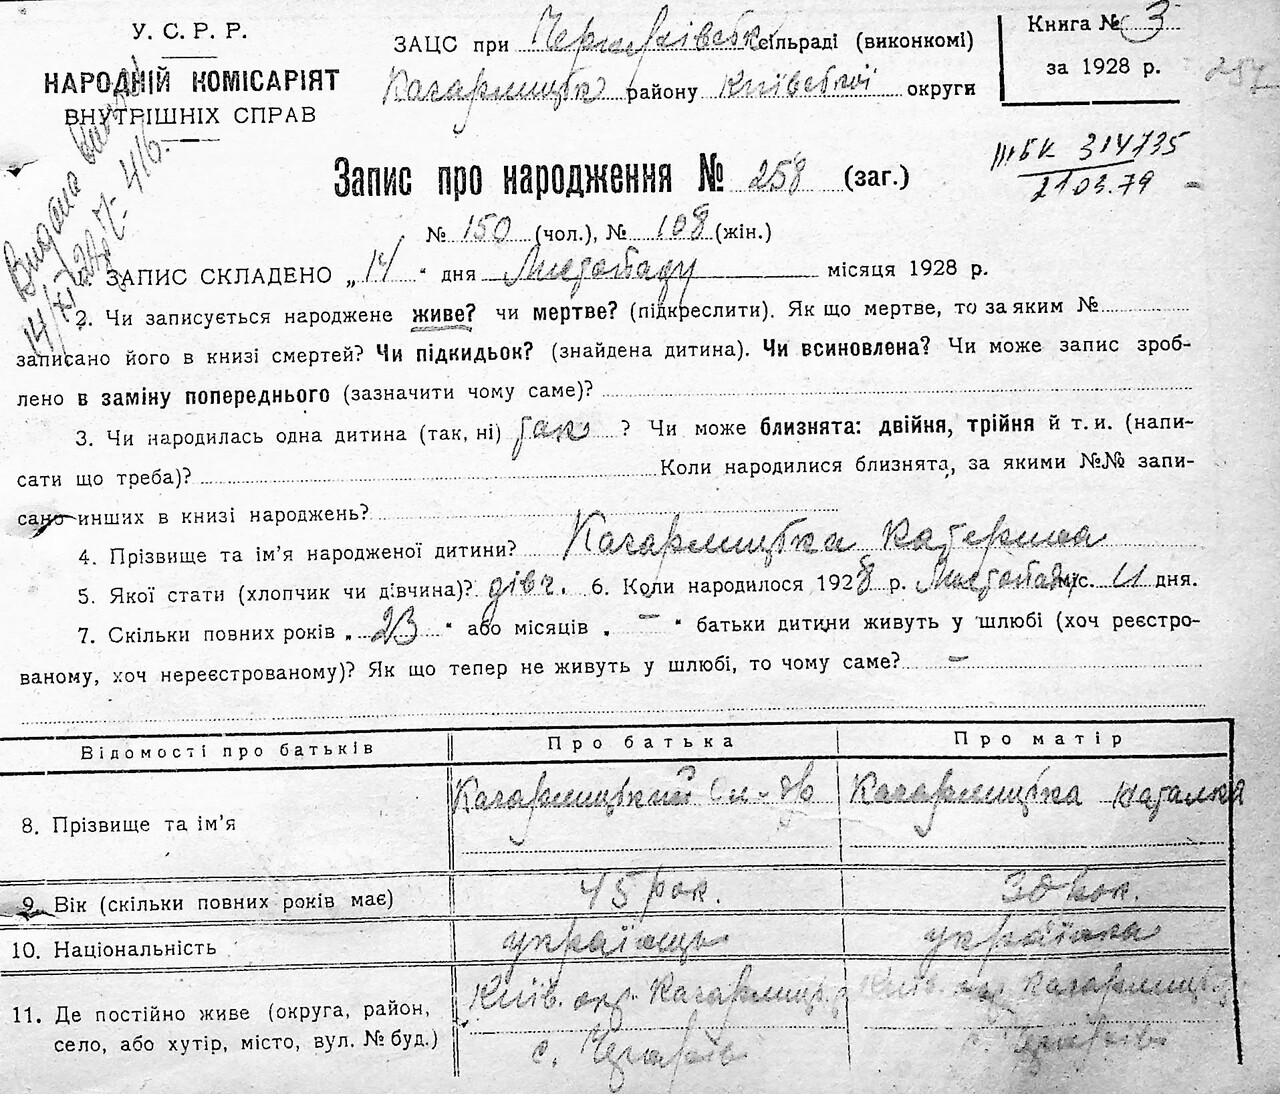 У. С. Р. Р.
НАРОДНІЙ КОМІСАРІЯТ
ВНУТРІШНІХ СПРАВ
ЗАЦС при сільраді (виконкомі)
Кагарлицьк району Київської округи
Книга № 3
за 1928 р.
257
Видана
14/XI 28 р. 416.
ІІІ БК 314735
21 03.79
Запис про народження № 258 (заг.)
№ 150 (чол.), № 108 (жін.)
ЗАПИС СКЛАДЕНО „ 14 “ дня Листопаду місяця 1928 р.
2. Чи записується народжене живе? чи мертве? (підкреслити). Як що мертве, то за яким №
записано його в книзі смертей? Чи підкидьок? (знайдена дитина). Чи всиновлена? Чи може запис зроб-
лено в заміну попереднього (зазначити чому саме)?
3. Чи народилась одна дитина (так, ні) так ? Чи може близнята: двійня, трійня й т. и. (напи-
сати що треба)? Коли народилися близнята, за якими №№ запи-
сано инших в книзі народжень?
4. Прізвище та ім’я народженої дитини? Кагарлицька Катерина
5. Якої стати (хлопчик чи дівчина)? дівч. 6. Коли народилося 1928 р. Листопаду міс. 11 дня.
7. Скільки повних років „ 23 “ або місяців „ — “ батьки дитини живуть у шлюбі (хоч реєстро-
ваному, хоч нереєстрованому)? Як що тепер не живуть у шлюбі, то чому саме? —
Відомості про батьків Про батька Про матір
8. Прізвище та ім’я Кагарлицький Кагарлицька Наталка
9. Вік (скільки повних років має) 45 рок. 38 рок.
10. Національність українець українка
11. Де постійно живе (округа, район, Київ. окр. Кагарлицьк. р Київ. окр. Кагарлицьк. р
село, або хутір, місто, вул. № буд.) с. с.